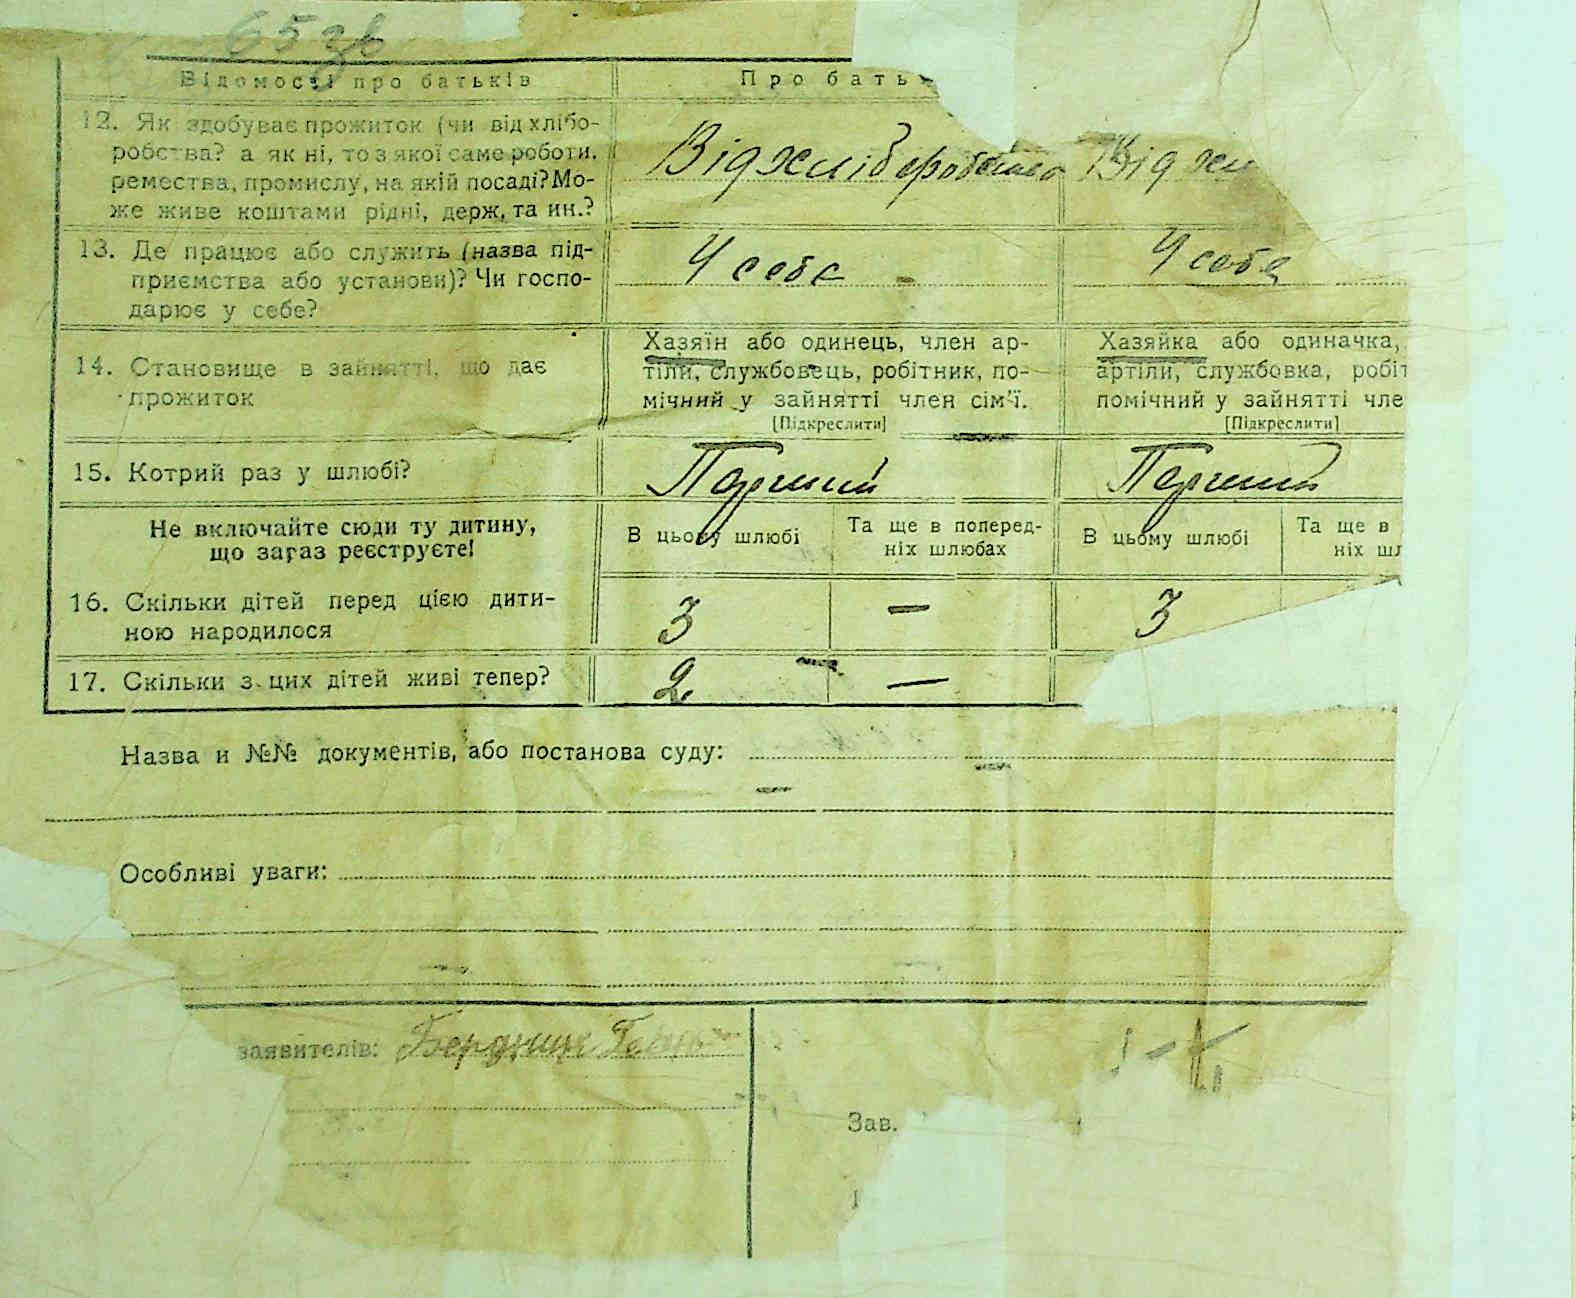 653в
Відомості про батьків Про бать
12. Як здобуває прожиток (чи від хлібо-
робства? а як ні, то з якої саме роботи,
ремества, промислу, на якій посаді? Мо-
же живе коштами рідні, держ, та ин.?
Від хліборобства Від хлі
13. Де працює або служить (назва під-
приємства або установи)? Чи госпо-
дарює у себе?
У себе У себе
14. Становище в зайнятті, що дає
прожиток
Хазяїн або одинець, член ар-
тіли, службовець, робітник, по-
мічний у зайнятті член сім'ї.
[Підкреслити]
Хазяйка або одиначка,
артіли, службовка, робіт
помічний у зайнятті чле
[Підкреслити]
15. Котрий раз у шлюбі? Перший Перший
Не включайте сюди ту дитину,
що зараз реєструєте!
В цьому шлюбі
Та ще в поперед-
ніх шлюбах
В цьому шлюбі
Та ще в
ніх шл
16. Скільки дітей перед цією дити-
ною народилося
3 — 3
17. Скільки з цих дітей живі тепер? 2 —
Назва и №№ документів, або постанова суду:
Особливі уваги:
заявителів:
Зав.